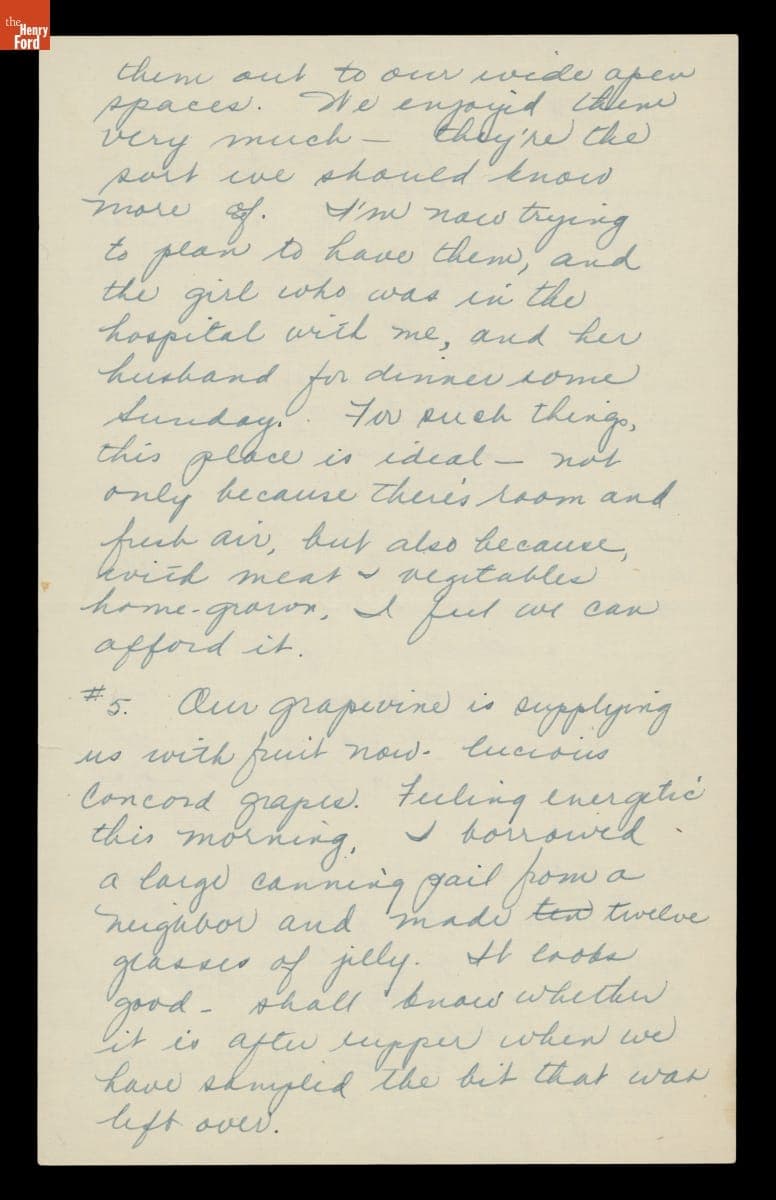 the
Henry
Ford
them out to our wide open
spaces. We enjoyed them
very much — they're the
sort we should know
more of. I'm now trying
to plan to have them, and
the girl who was in the
hospital with me, and her
husband for dinner some
Sunday. For such things,
this place is ideal — not
only because there's room and
fresh air, but also because,
with meat & vegetables
home-grown, I feel we can
afford it.
#5. Our grapevine is supplying
us with fruit now - lucious
Concord grapes. Feeling energetic
this morning, I borrowed
a large canning pail from a
neighbor and made ten twelve
glasses of jelly. It looks
good - shall know whether
it is after supper when we
have sampled the bit that was
left over.